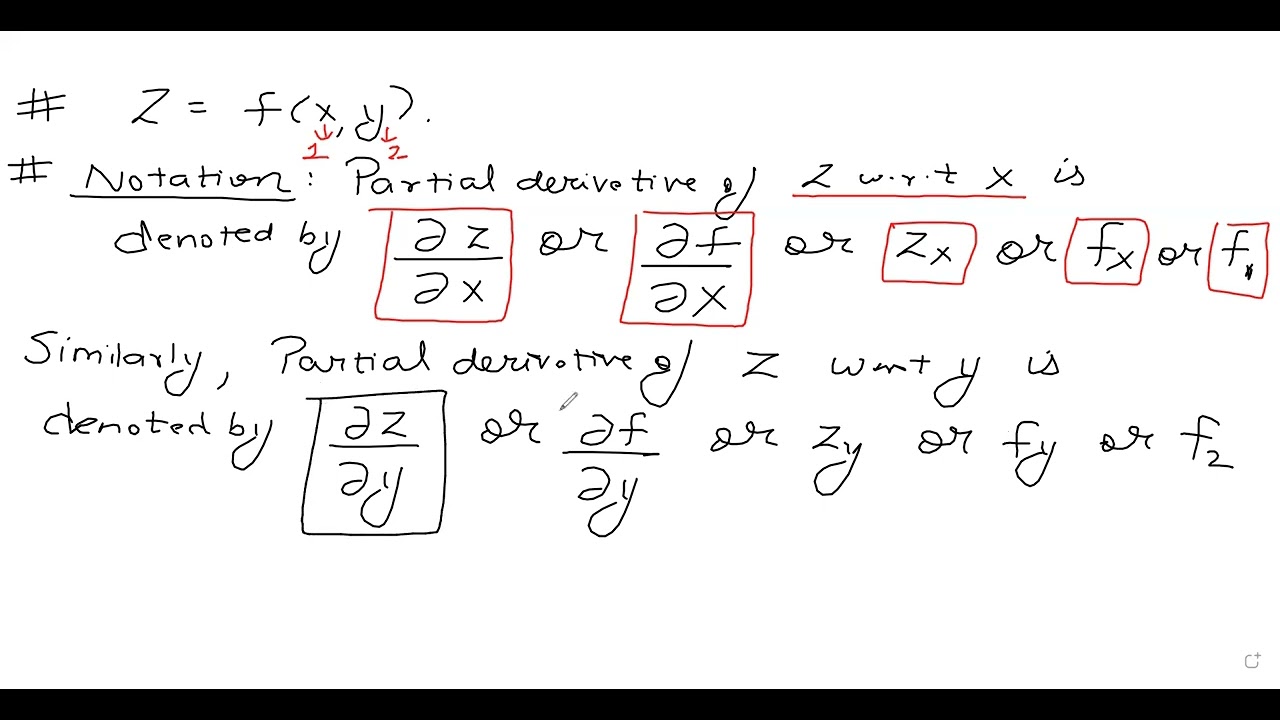 # Z = f(x, y).
1 2
# Notation: Partial derivative of z w.r.t x is
denoted by ∂z/∂x or ∂f/∂x or zₓ or fₓ or f₁
Similarly, Partial derivative of z wrt y is
denoted by ∂z/∂y or ∂f/∂y or z_y or f_y or f₂